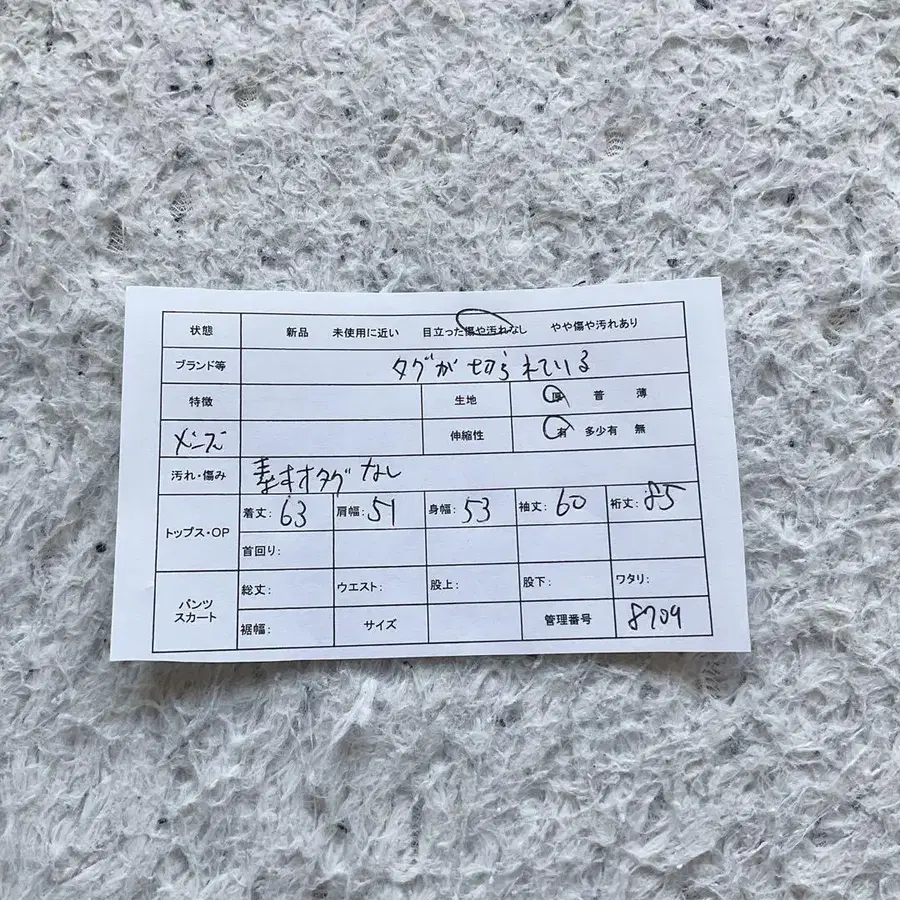 状態 新品 未使用に近い 目立った傷や汚れなし やや傷や汚れあり
ブランド等 タグが切られている
特徴 生地 厚 普 薄
メンズ 伸縮性 有 多少有 無
汚れ・傷み 素材タグなし
トップス・OP 着丈: 63 肩幅: 51 身幅: 53 袖丈: 60 裄丈: 85
首回り:
パンツ スカート 総丈: ウエスト: 股上: 股下: ワタリ:
裾幅: サイズ 管理番号 8709